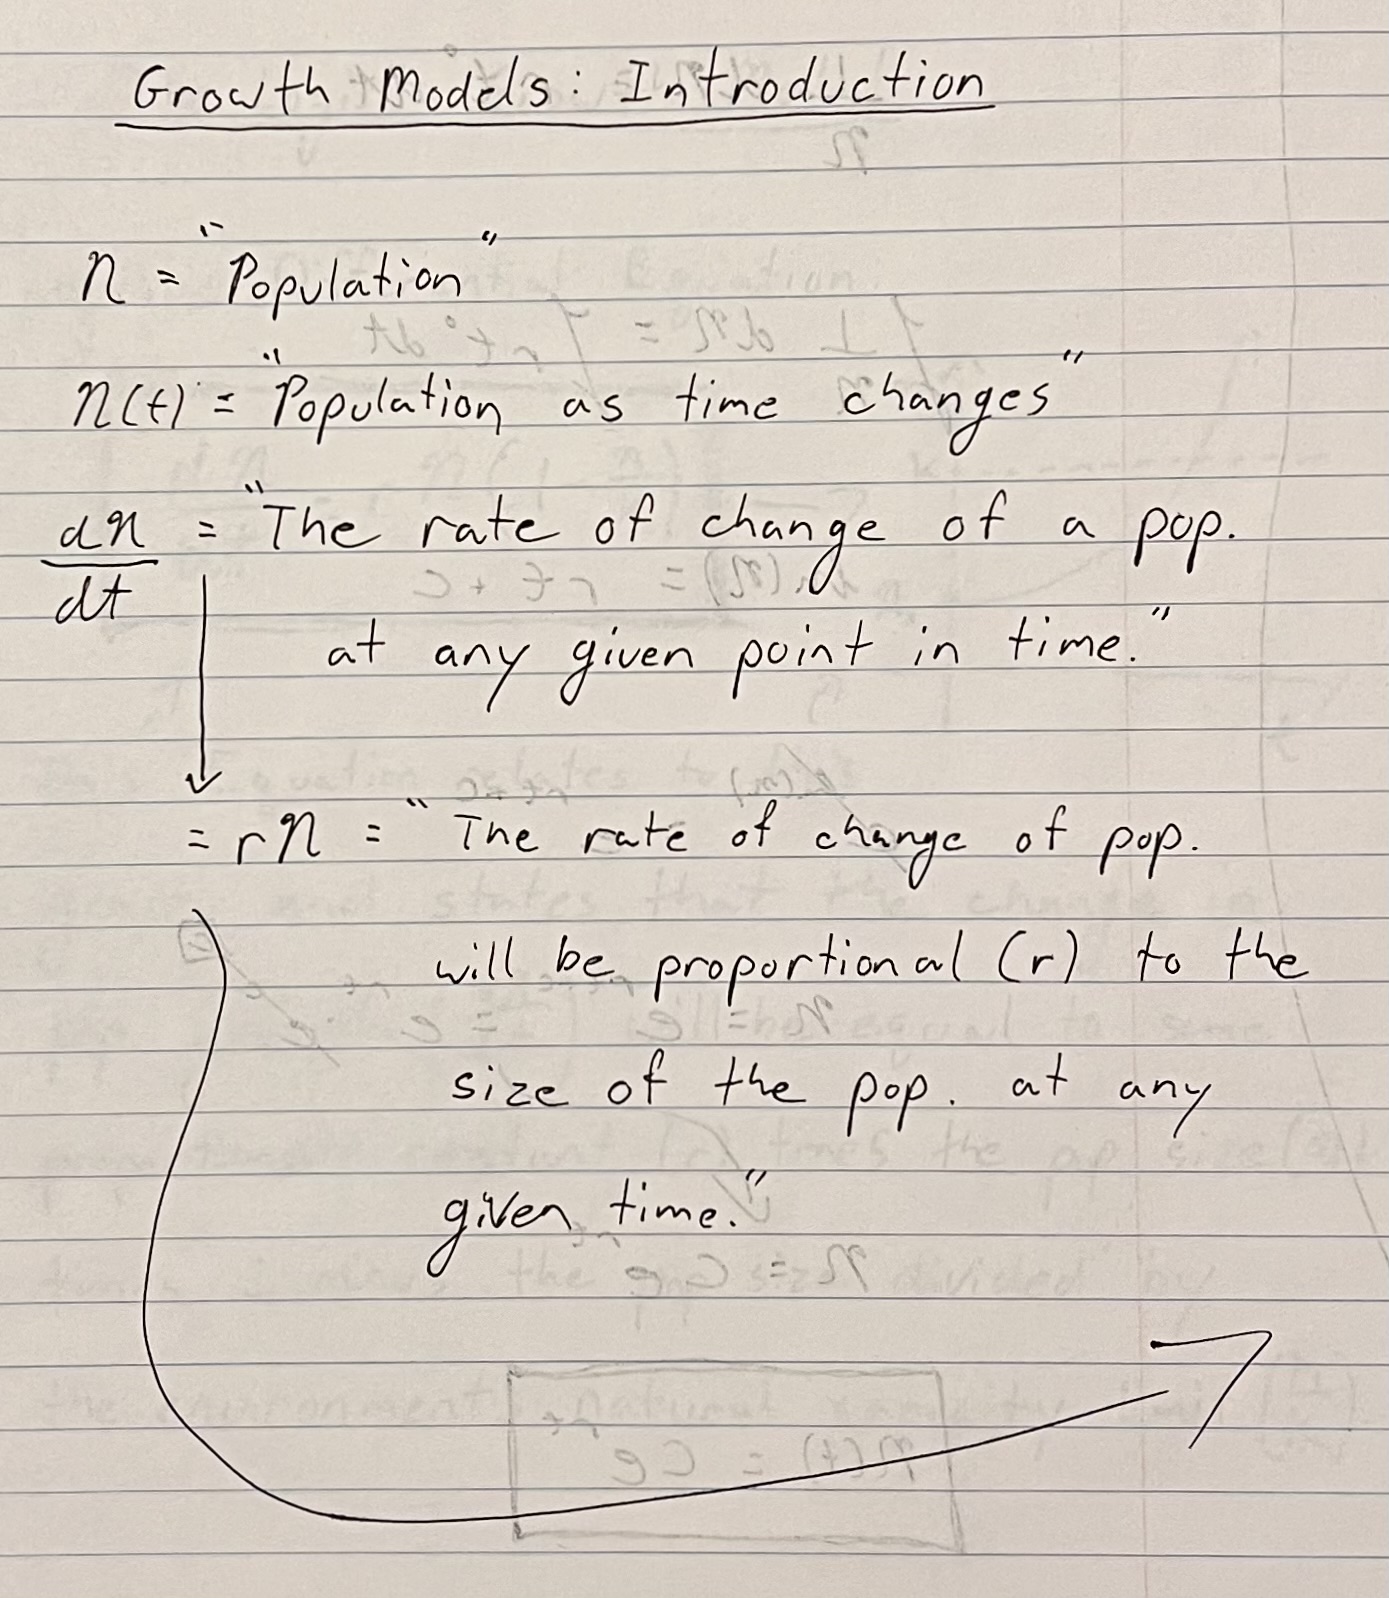 Growth Models: Introduction
n = "Population"
n(t) = "Population as time changes"
dn/dt = "The rate of change of a pop.
at any given point in time."
= rn = "The rate of change of pop.
will be proportional (r) to the
size of the pop. at any
given time."